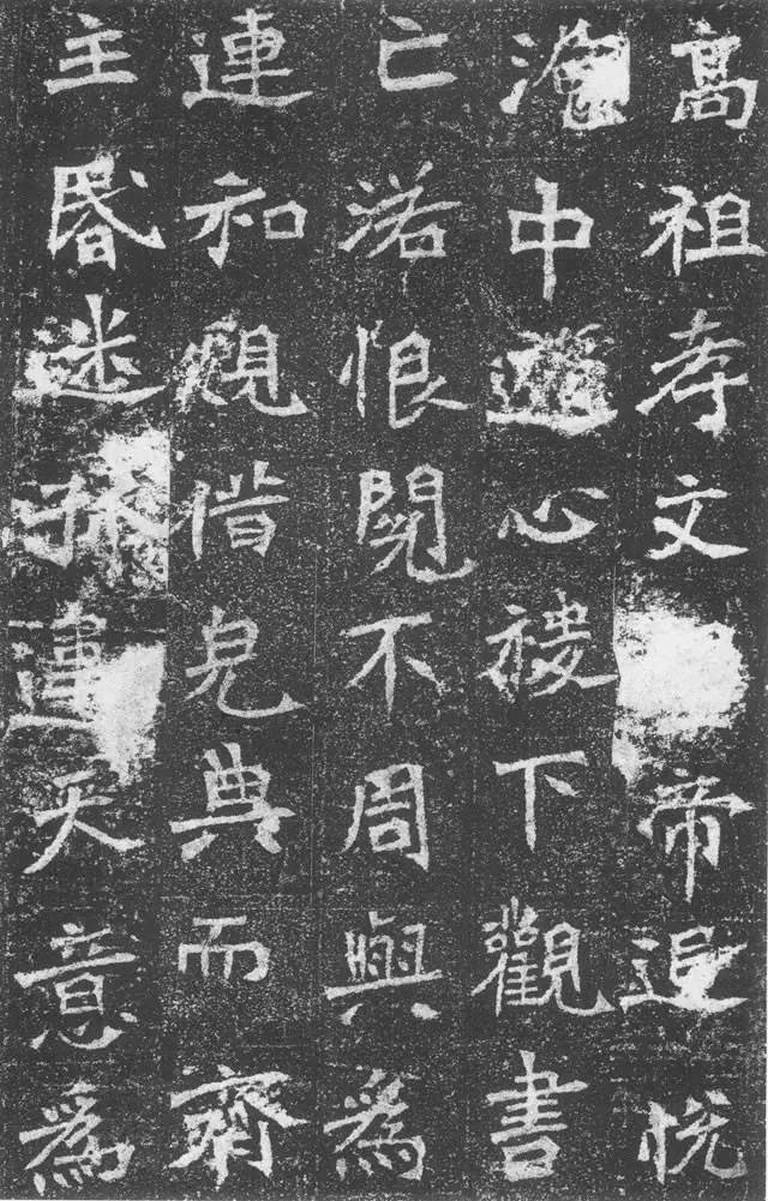 高祖孝文帝追悅
淹中遊心稷下觀書
亡落恨閱不周與為
連和規借完典而齊
主昬迷孤違天意為